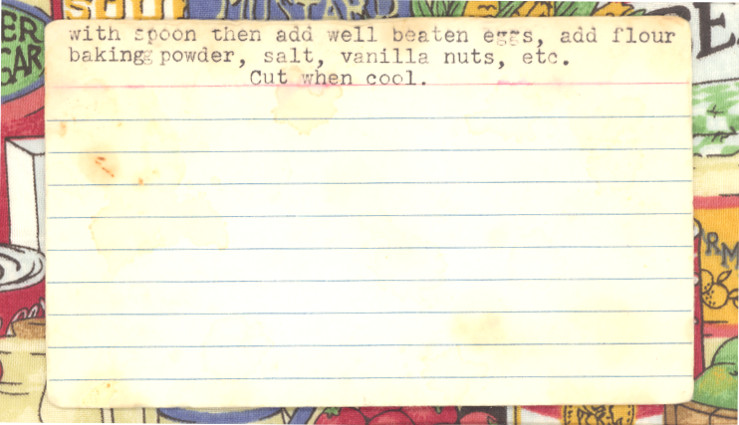 SOUP
MUSTARD
ER
GAR
with spoon then add well beaten eggs, add flour
baking powder, salt, vanilla nuts, etc.
Cut when cool.